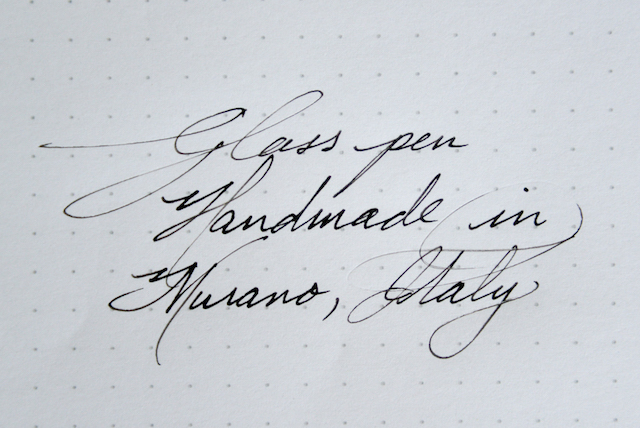 Glass pen
Handmade in
Murano, Italy